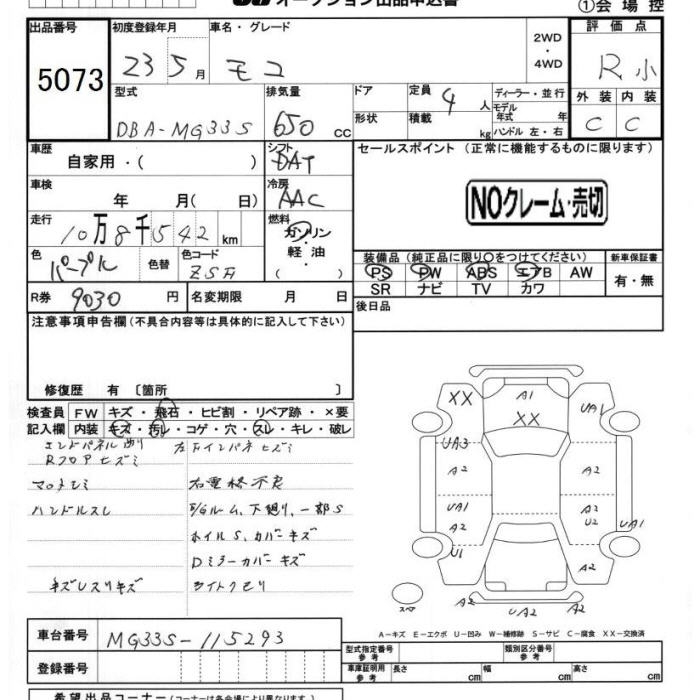 オークション出品申込書
①会場控
出品番号 初度登録年月 車名・グレード 評価点
5073 23 5月 モコ 2WD・4WD R小
型式 排気量 ドア 定員 4人 ディーラー・並行 外装 内装
DBA-MG33S 650cc 形状 積載 kg モデル年式 年 ハンドル 左・右 C C
車歴 自家用・( ) シフト DAT セールスポイント (正常に機能するものに限ります)
車検 年 月( 日) 冷房 AAC NOクレーム・売切
走行 10万8千542km 燃料 ガソリン・軽油・( )
色 パープル 色替 色コード 装備品 (純正品に限り○をつけてください) 新車保証書
PS PW ABS エアB AW 有・無
SR ナビ TV カワ
R券 9030円 名変期限 月 日 後日品
注意事項申告欄(不具合内容等は具体的に記入して下さい)
修復歴 有 〔箇所 〕
検査員 FW キズ・飛石・ヒビ割・リペア跡・×要
記入欄 内装 キズ・汚レ・コゲ・穴・スレ・キレ・破レ
エンドパネル
Rフロアヒズミ
ハンドルスレ
右電格不良
ホイルS、カバーキズ
Dミラーカバーキズ
ライトクモリ
XX A1 XX UA1
UA3 A2 A2
UA1 A2 A2 U2 UA1
U1 A2
スペア A2 UA2 A2
A-キズ E-エクボ U-凹み W-補修跡 S-サビ C-腐食 XX-交換済
車台番号 MG33S-115293
登録番号
型式指定番号 参考 類別区分番号 参考
車庫証明用 参考 長さ cm 幅 cm 高さ cm
希望出品コーナー(コーナーは各会場により異なります)